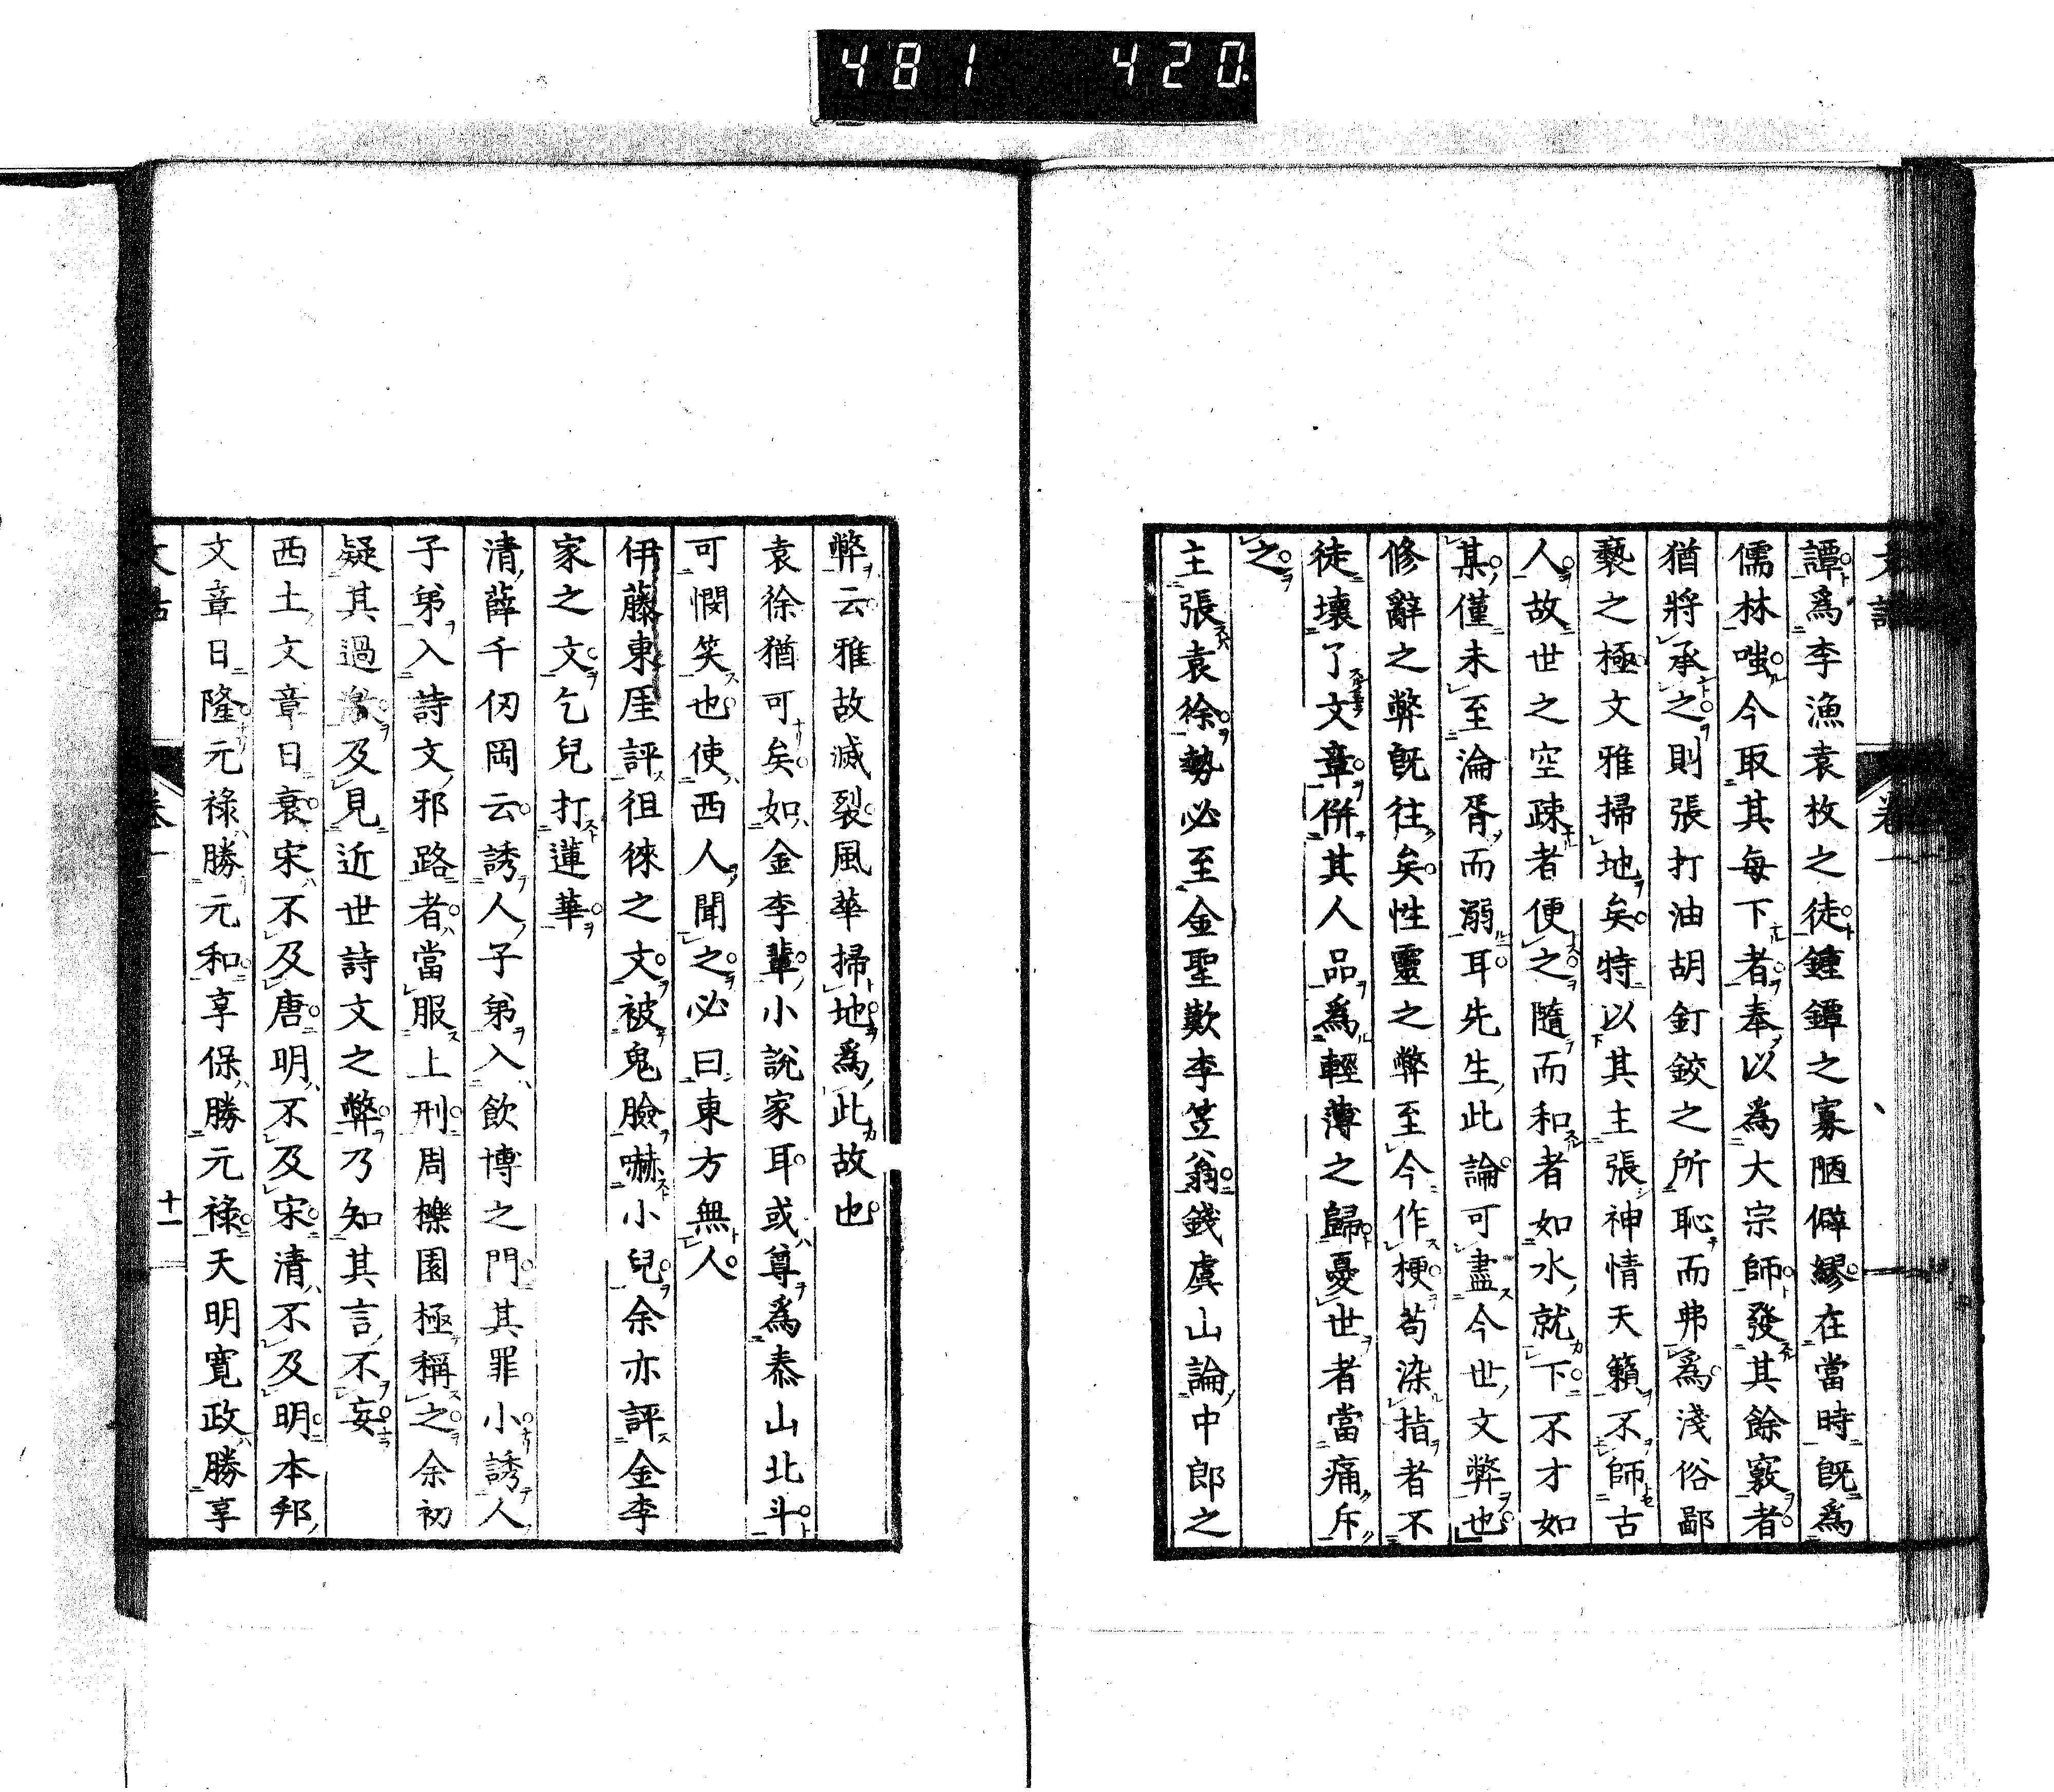 481 420
譚爲李漁袁枚之徒鍾鐔之寡陋僻繆在當時既爲
儒林嗤今取其每下者奉以爲大宗師發其餘竅者
猶將承之則張打油胡釘鉸之所恥而弗爲淺俗鄙
褻之極文雅掃地矣特以其主張神情天籟不師古
人故世之空疎者便之隨而和者如水就下不才如
某僅未至淪胥而溺耳先生此論可盡今世文弊也
修辭之弊既往矣性靈之弊至今作梗苟染指者不
徒壞了文章併其人品爲輕薄之歸憂世者當痛斥
之
主張袁徐勢必至金聖歎李笠翁錢虞山論中郎之
弊云雅故滅裂風華掃地爲此故也
袁徐猶可矣如金李輩小說家耳或尊爲泰山北斗
可憫笑也使西人聞之必曰東方無人
伊藤東厓評徂徠之文被鬼臉嚇小兒余亦評金李
家之文乞兒打蓮華
清薛千仞岡云誘人子弟入飲博之門其罪小誘人
子弟入詩文邪路者當服上刑周櫟園極稱之余初
疑其過激及見近世詩文之弊乃知其言不妄
西土文章日衰宋不及唐明不及宋清不及明本邦
文章日隆元祿勝元和享保勝元祿天明寬政勝享
十一